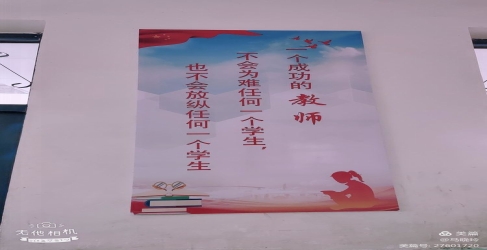 一个成功的教师
不会为难任何一个学生，
也不会放纵任何一个学生
无他相机
美篇
美篇号：27601720